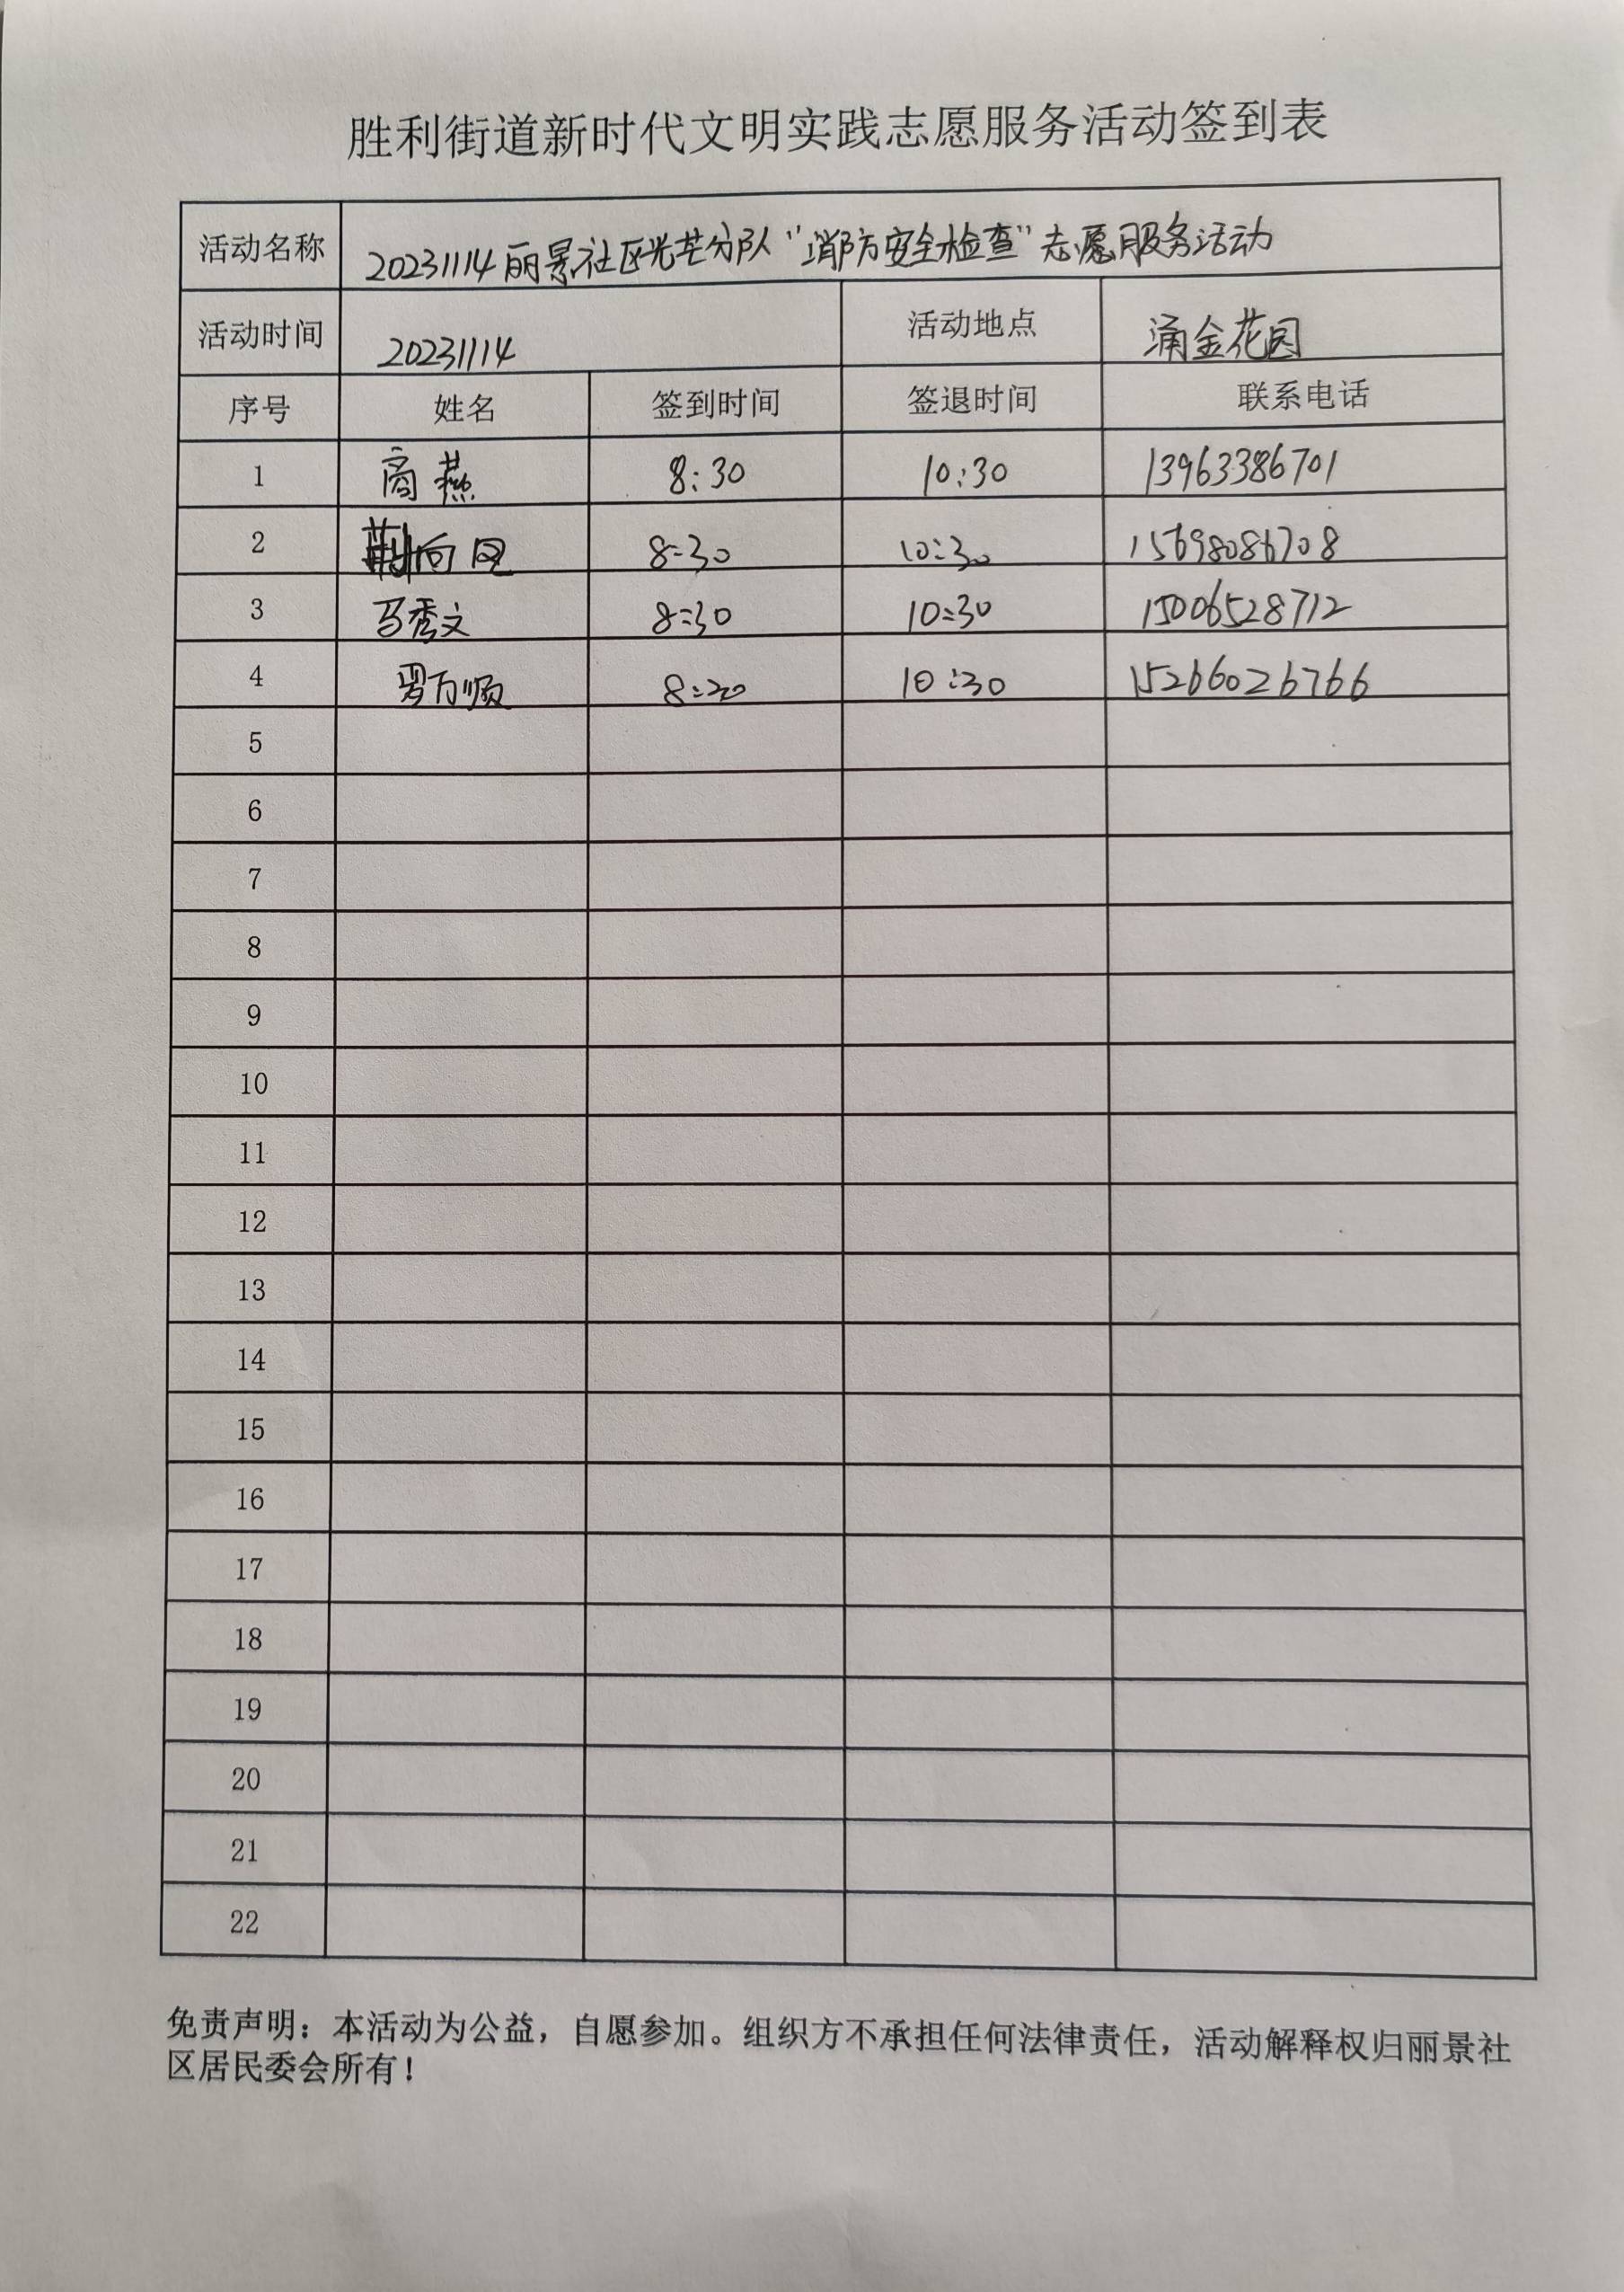 胜利街道新时代文明实践志愿服务活动签到表
活动名称 20231114丽景社区光芒分队“消防安全检查”志愿服务活动
活动时间 20231114 活动地点 涌金花园
序号 姓名 签到时间 签退时间 联系电话
1 商燕 8:30 10:30 13963386701
2 荆向 8:30 10:30 15698086708
3 马秀文 8:30 10:30 15006528712
4 罗万顺 8:30 10:30 15266026766
5
6
7
8
9
10
11
12
13
14
15
16
17
18
19
20
21
22
免责声明：本活动为公益，自愿参加。组织方不承担任何法律责任，活动解释权归丽景社
区居民委会所有！